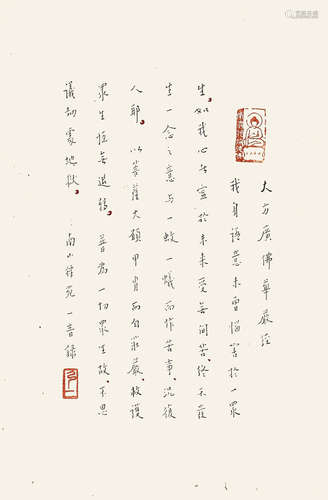 大方廣佛華嚴經
我身語意未曾惱害於一眾
生。如我心者寧於未來受無間苦。終不發
生一念之意与一蚊一蟻而作苦事。況復
人耶。以菩薩大願甲冑而自莊嚴。救護
眾生恒無退轉。普為一切眾生故。不思
議劫處地獄。南山律苑一音錄